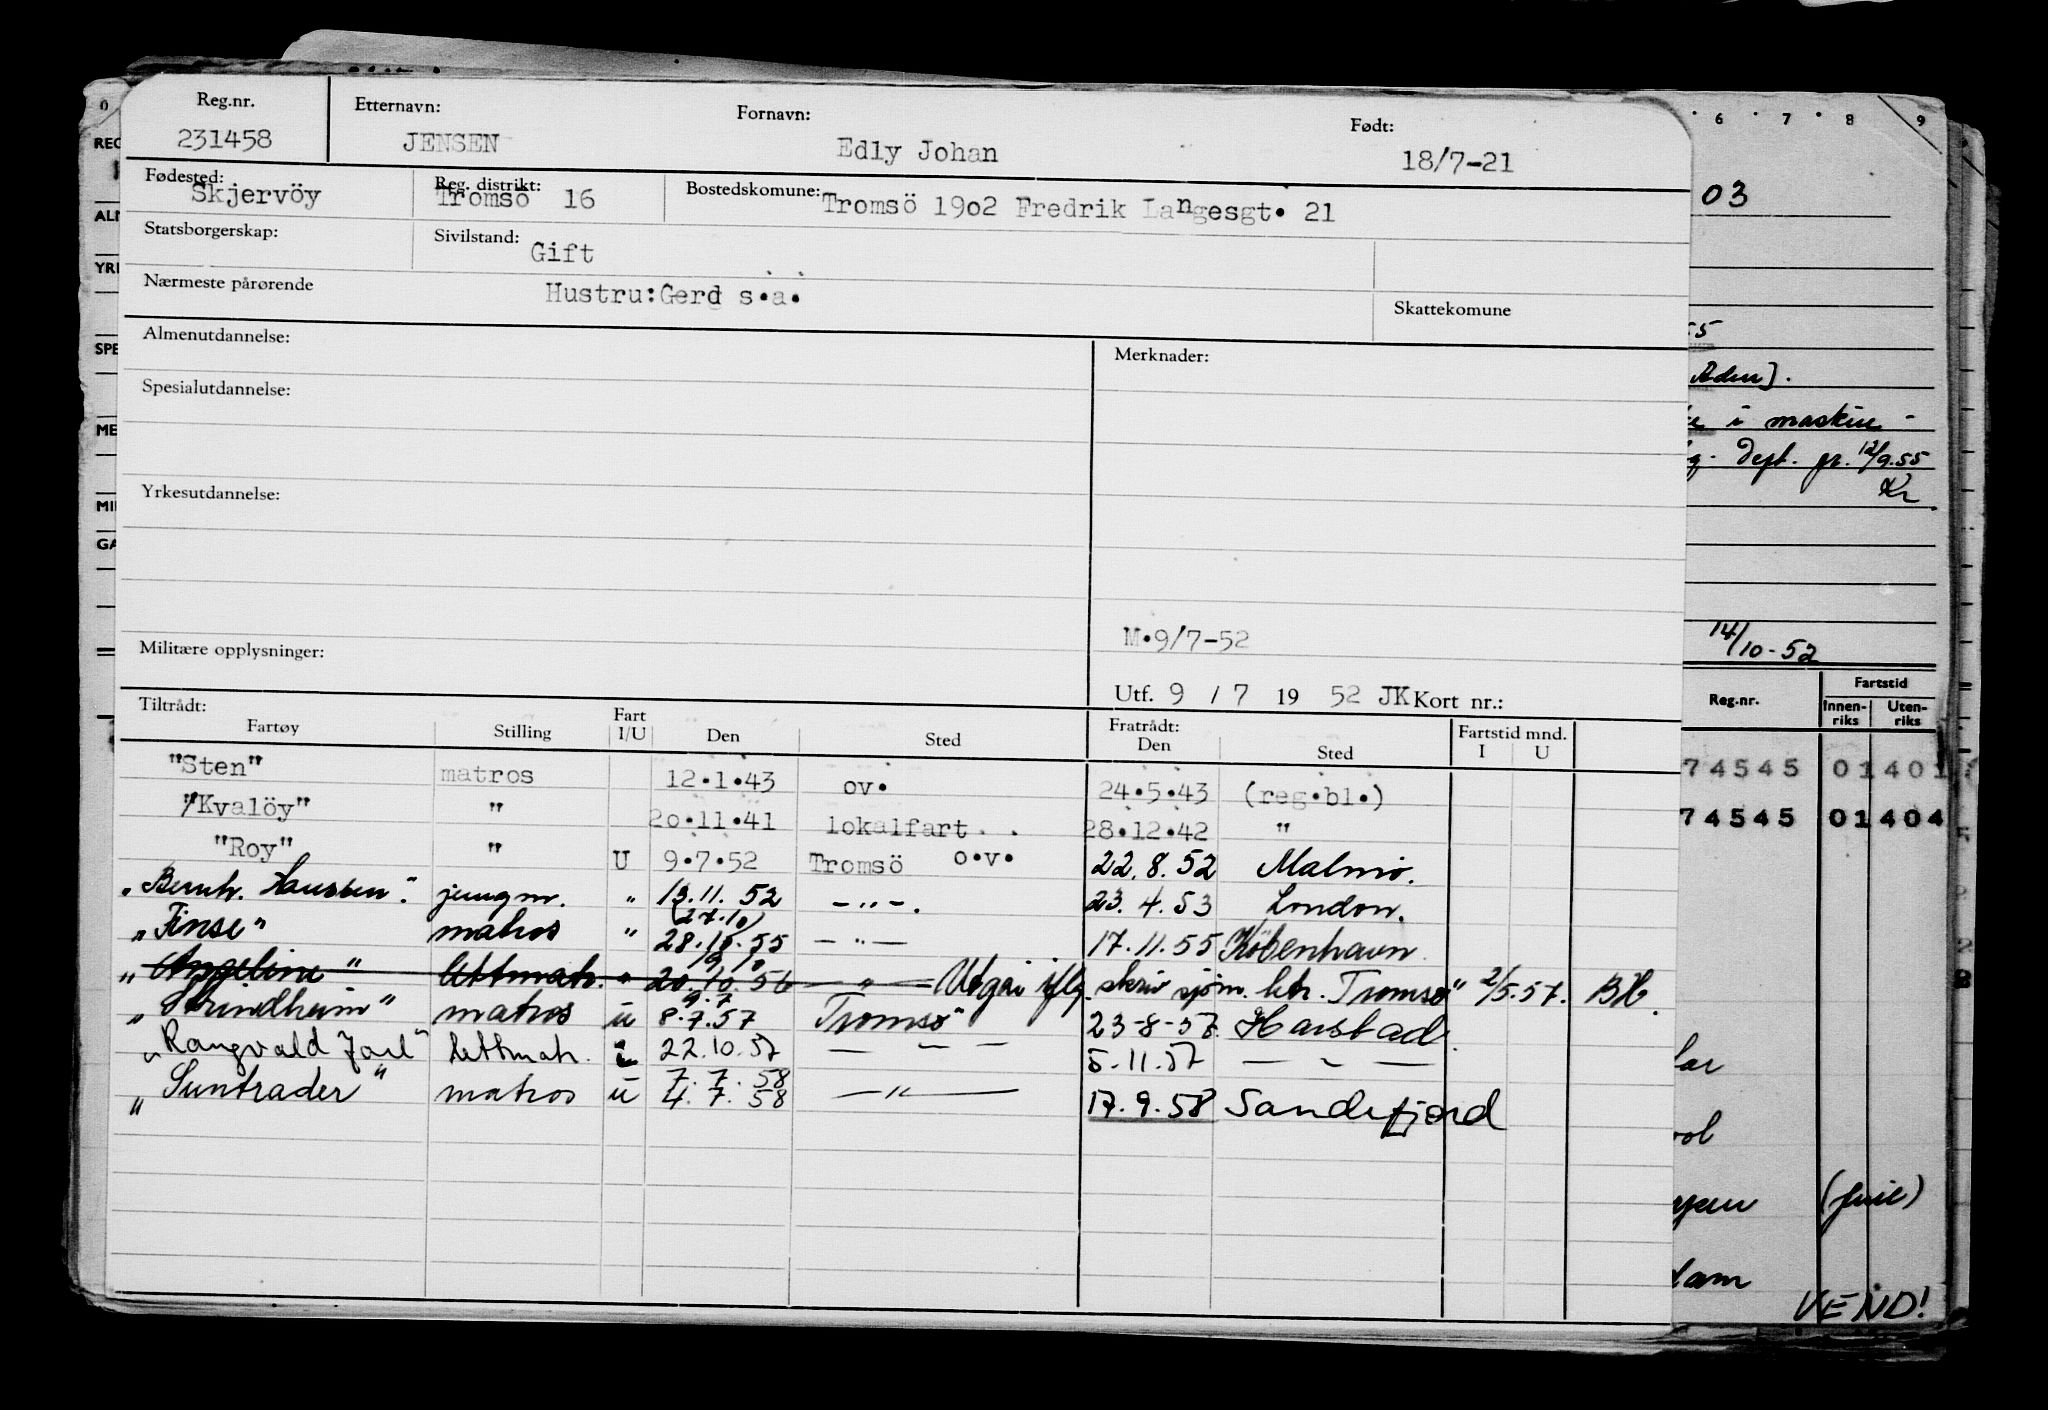 Reg.nr. Etternavn: Fornavn: Født:
231458 JENSEN Edly Johan 18/7-21
Fødested: Reg. distrikt: Bostedskomune:
Skjervöy Tromsö 16 Tromsö 19o2 Fredrik Langesgt. 21
Statsborgerskap: Sivilstand:
Gift
Nærmeste pårørende Hustru:Gerd s.a. Skattekomune
Almenutdannelse: Merknader:
Spesialutdannelse:
Yrkesutdannelse:
M.9/7-52
Militære opplysninger:
Utf. 9 / 7 19 52 JK Kort nr.:
Tiltrådt: Fratrådt:
Fartøy Stilling Fart I/U Den Sted Den Sted Fartstid mnd. I U
"Sten" matros 12.1.43 ov. 24.5.43 (reg.bl.)
"Kvalöy" " 2o.11.41 lokalfart.. 28.12.42 "
"Roy" " U 9.7.52 Tromsö o.v. 22.8.52 Malmö.
"Bernh. Hanssen". jungm. " 13.11.52 -"-. 23.4.53 London.
(27.10)
"Finse" matros " 28.10.55 -"- 17.11.55 Köbenhavn
19 10
"Angelina" lettmatr. " 20.10.56 -"- Utgår iflg. skriv sjøm. ktr. Tromsø" 2/5.57. BH.
9.7
"Strindheim" matros u 8.7.57 Tromsø" 23-8-57. Harstad.
"Rangvald Jarl" lettmatr. i 22.10.57 -"- 5.11.57 -"-
7.7.58
"Suntrader" matros u 4.7.58 -"- 17.9.58 Sandefjord
0 6 7 8 9
REG
03
ALM
YRK
55
SPE
Aden].
ME
i maskin -
Dept. gr. 12/9.55
Kr
MIL
GA
14/10-52
Reg.nr. Fartstid
Innen-riks Uten-riks
74545 01 401
74545 01 404
(juil)
VEND!